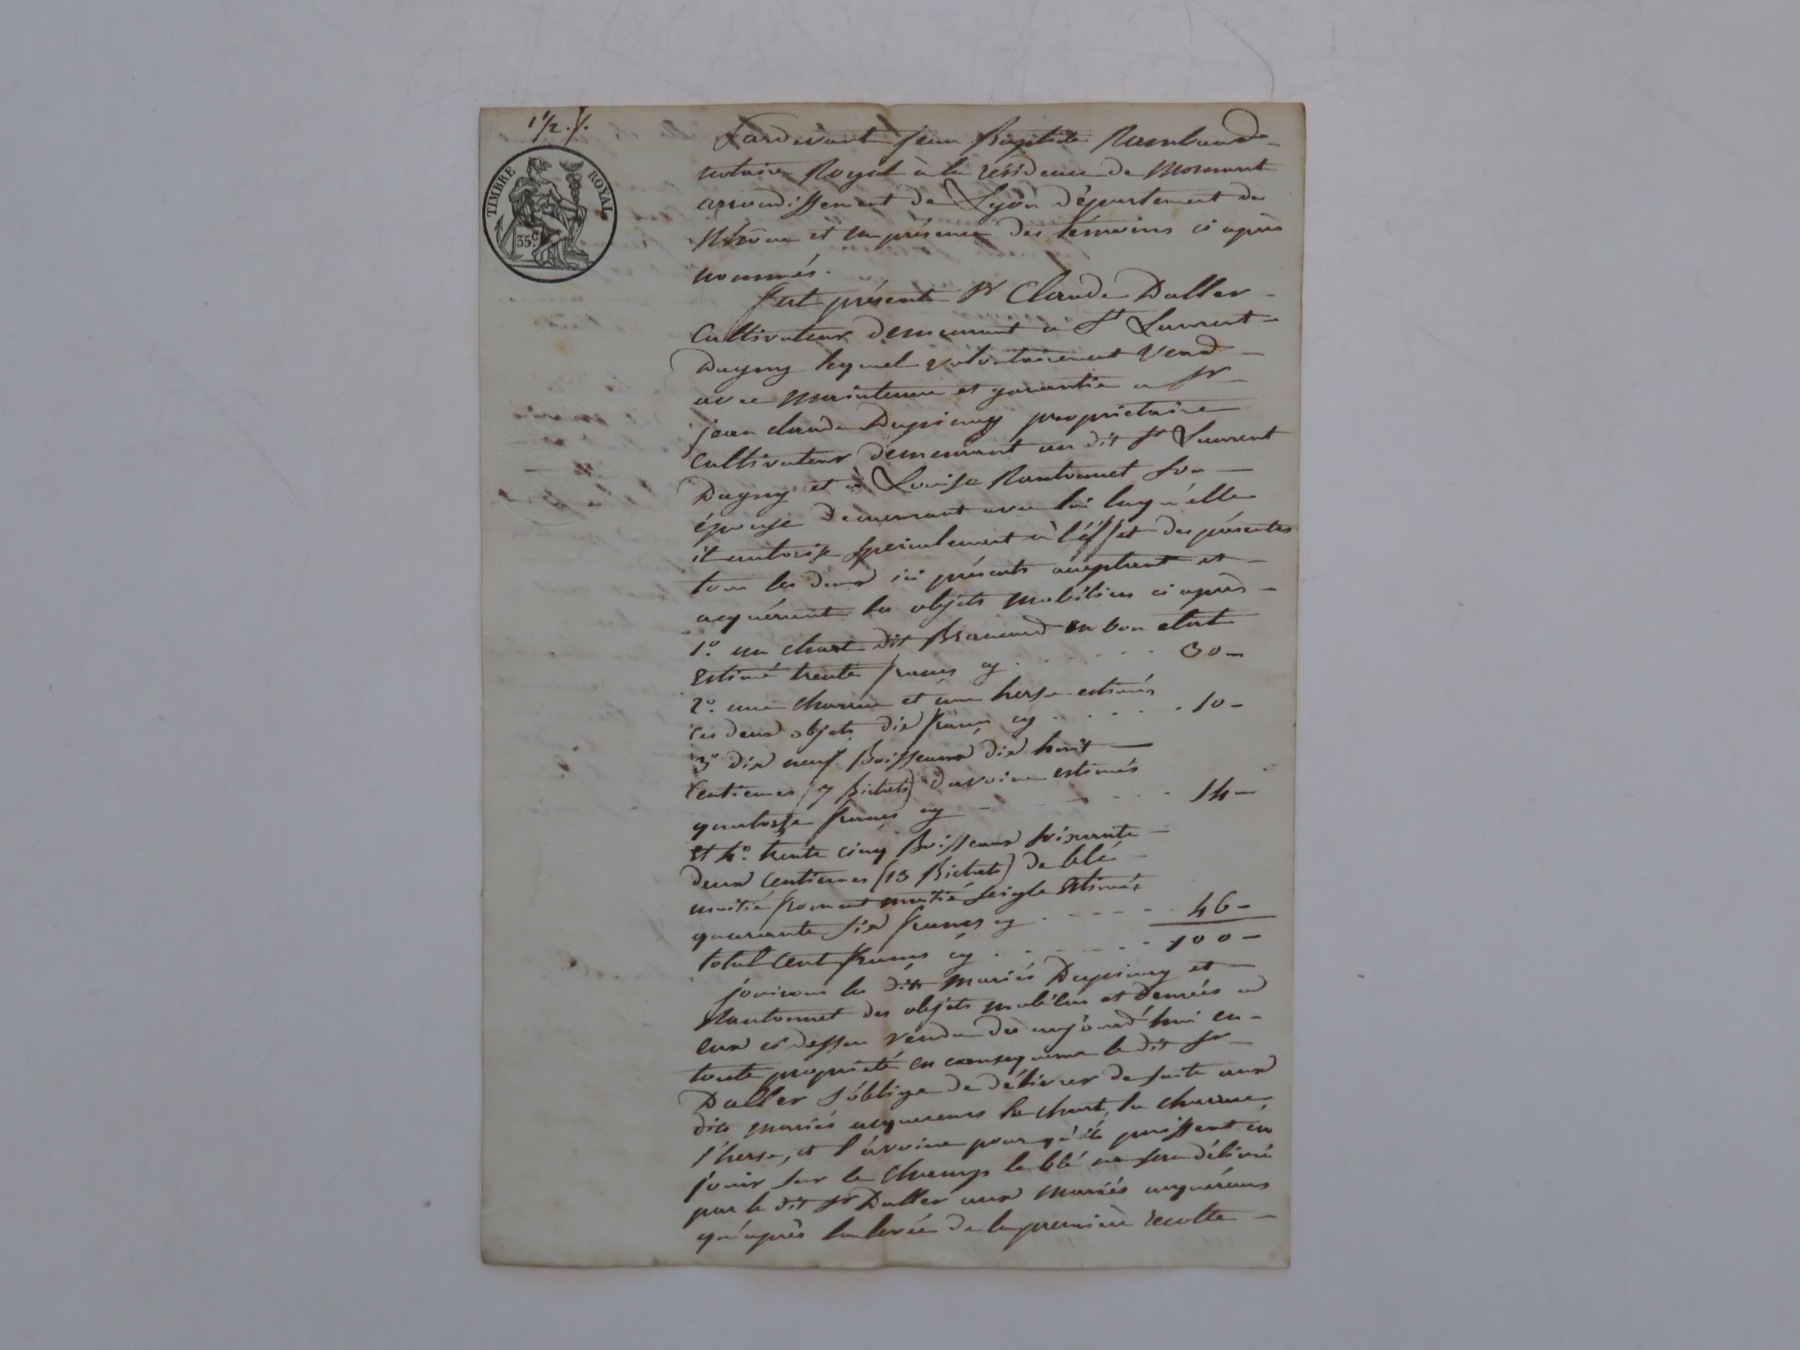 1 1/2. f.
TIMBRE ROYAL
35 c
Pardevant jean Baptiste Rambaud
notaire Royal à la résidence de Mornant
arrondissement de Lyon département du
Rhône et en présence des témoins ci après
nommés.
fut présent Sr Claude Daller
Cultivateur demeurant a St Laurent
Dagny lequel volontairement vend
avec maintenue et garantie a Sr
jean claude Dupinay propriétaire
cultivateur demeurant au dit St Laurent
Dagny et à Louise Rantonnet son
épouse demeurant avec lui laqu'elle
il autorise specialement à l'éffet des présentes
tous les deux ici présents acceptant et
acquérant les objets mobiliers ci après
1° un chart dit Brancard en bon etat
Estimé trente francs cy 30
2° une charrue et une herse estimés
ces deux objets dix francs cy 10
3° dix neuf Boisseaux dix huit
Centiemes (7 Bichets) davoine estimés
quatorze francs cy 14
Et 4° trente cinq Boisseaux soixante
deux Centiemes (13 Bichets) de blé
moitié froment moitié seigle Estimés
quarante six francs cy 46
total Cent francs cy 100
jouiront les dits mariés Dupinay et
Rantonnet des objets mobiliers et denrées a
eux ci dessus vendu dès aujourd'hui en
toute propriété en consequence le dit Sr
Daller s'oblige de délivrer de suite aux
dits mariés acquereurs le chart, la charrue,
l'herse, et l'avoine pour qu'ils puissent en
jouir sur le champs le blé ne sera délivré
par le dit Sr Daller aux mariés acquéreurs
qu'après la levée de la premiere recolte